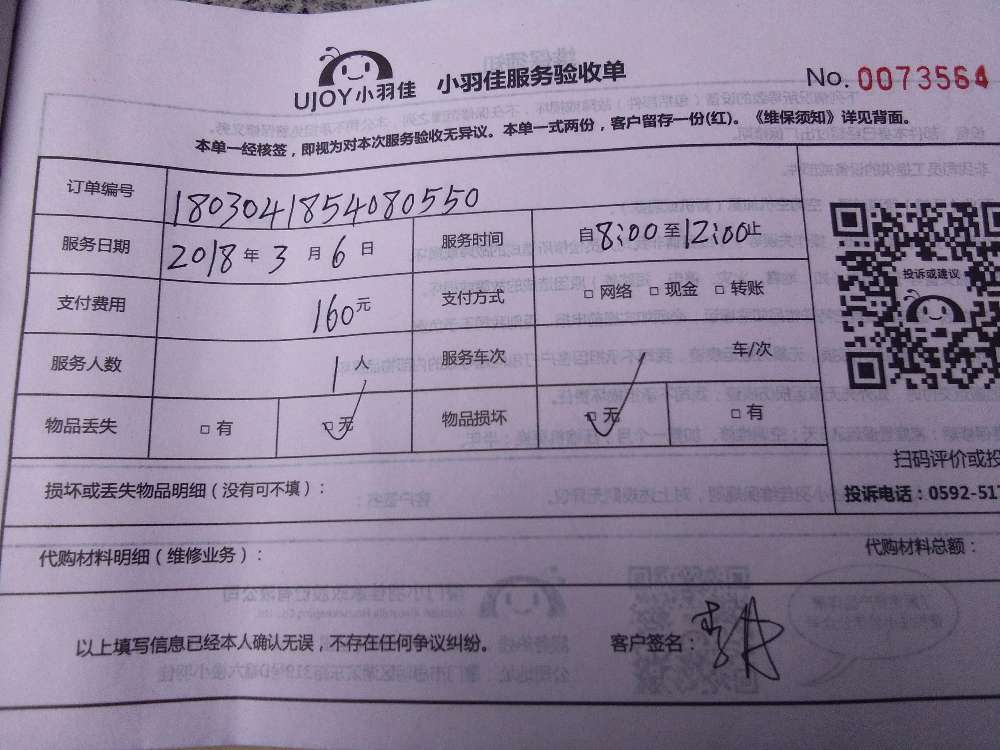 UJOY小羽佳 小羽佳服务验收单 No. 0073564
本单一经核签，即视为对本次服务验收无异议。本单一式两份，客户留存一份(红)。《维保须知》详见背面。
订单编号 1803041854080550
服务日期 2018年3月6日 服务时间 自8:00至12:00止
投诉或建议
支付费用 160元 支付方式 □网络 □现金 □转账
服务人数 1人 服务车次 车/次
物品丢失 □有 □无 物品损坏 □无 □有
扫码评价或投
损坏或丢失物品明细（没有可不填）：
投诉电话：0592-517
代购材料明细（维修业务）： 代购材料总额：
以上填写信息已经本人确认无误，不存在任何争议纠纷。 客户签名：